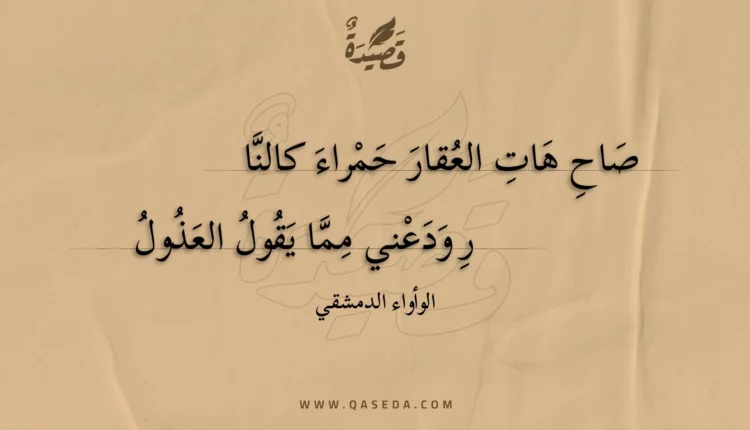 قَصِيدَةٌ
صَاحِ هَاتِ العُقارَ حَمْراءَ كالنَّا
رِ وَدَعْني مِمَّا يَقُولُ العَذُولُ
الوأواء الدمشقي
WWW.QASEDA.COM